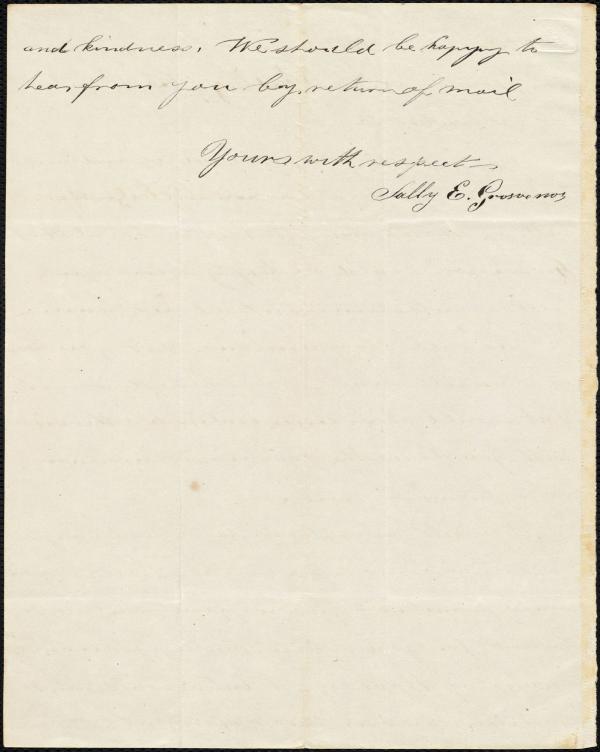 and kindness. We should be happy to
hear from you by return of mail
Yours with respect
Sally E. Grosvenor